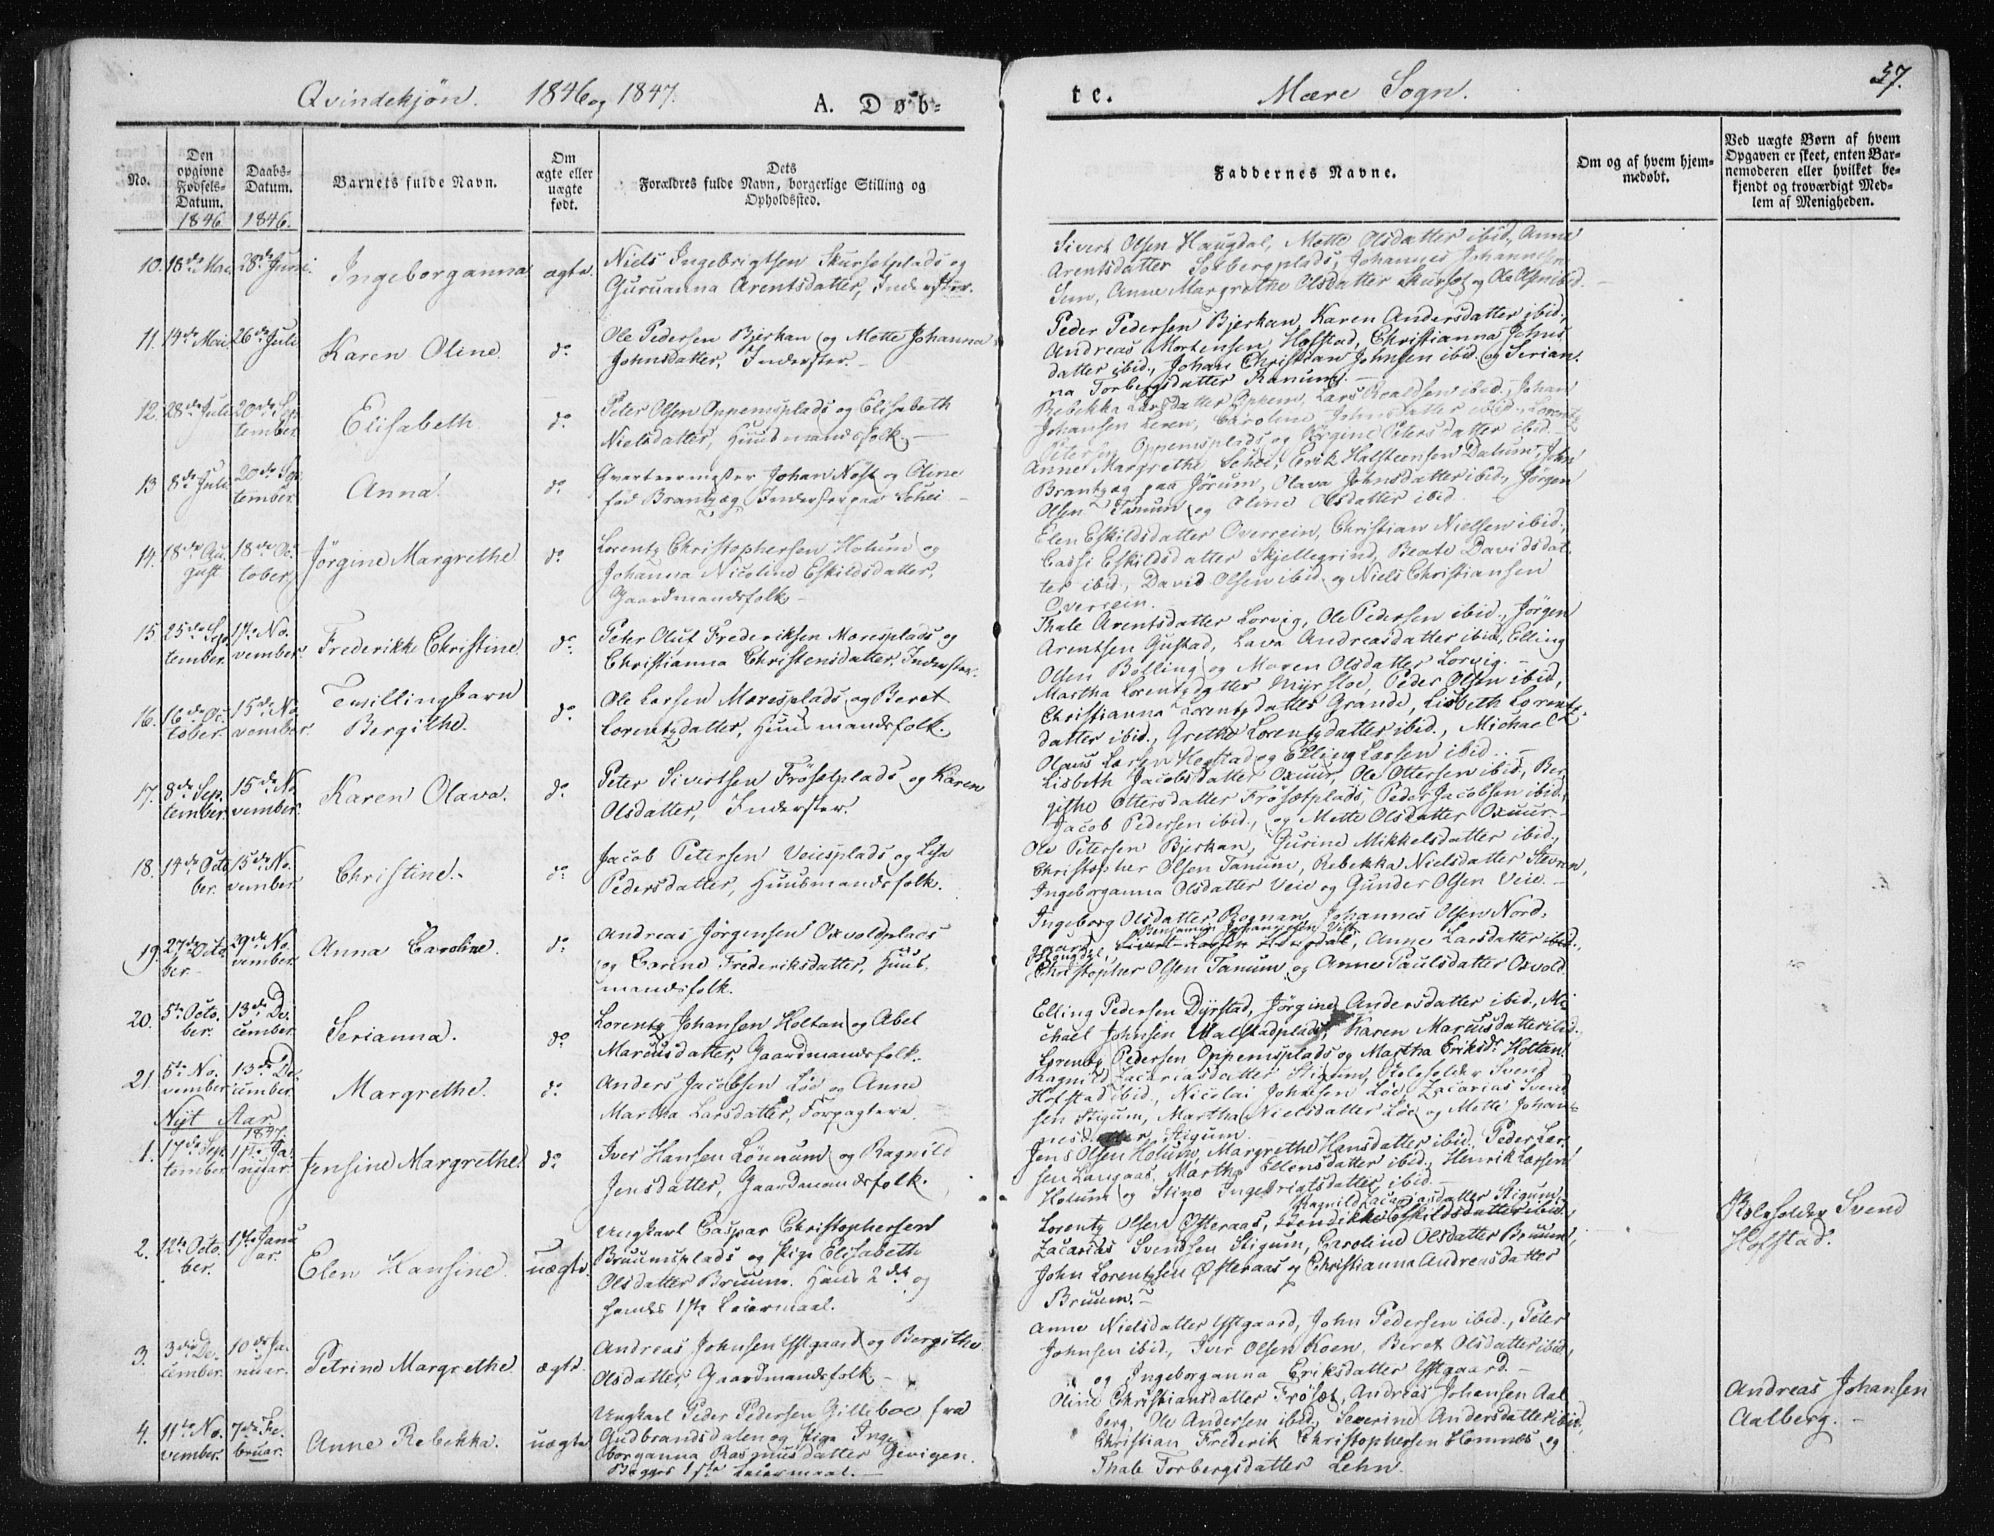 Qvindekjön. 1846 og 1847. A. Døb=
te. Mære Sogn. 37.
No.
Den opgivne Fødsels-Datum. 1846
Daabs-Datum. 1846.
Barnets fulde Navn.
Om ægte eller uægte født.
Dets Forældres fulde Navn, borgerlige Stilling og Opholdssted.
Faddernes Navne.
Om og af hvem hjemmedøbt.
Ved uægte Børn af hvem Opgaven er skeet, enten Barnemoderen eller hvilket bekjendt og troværdigt Medlem af Menigheden.
10. 18de Mai 28de Juni. Ingeborganna ægte.
Niels Ingebrigtsen Skursetplads og
Guruanna Arentsdatter, Inderster.
Sivert Olsen Haugdal, Mette Olsdatter ibid., Anne
Arentsdatter Solbergplads, Johannes Johannesen
Sem, Anne Margrethe Olsdatter Skurset og Ole Olsen ibid.
11. 14de Mai 26de Juli Karen Oline do
Ole Pedersen Bjerkan og Mette Johanna
Johnsdatter, Inderster.
Peder Pedersen Bjerkan, Karen Andersdatter ibid.,
Andreas Mortensen Hofstad, Christianna Johns
datter ibid., Johan Christian Johnsen ibid. og Serian-
na Torbergsdatter Kanum.
12. 28de Juli 20de September. Elisabeth do
Peter Olsen Oppemsplads og Elisabeth
Nielsdatter, Huusmandsfolk.
Rebekka Larsdatter Opkem, Lars Roaldsen ibid., Johan
Johansen Leren, Caroline Johnsdatter ibid., Lorentz
Petersen Oppemsplads og Jørgine Petersdatter ibid.
13 8de Juli 20de September. Anna do
Qvarteermester Johan Nøst og Oline
fød Brantzæg, Inderster paa Schei
Anne Margrethe Schei, Erik Halsteensen Dalum, John
Brantzæg paa Jørum, Olava Johnsdatter ibid., Jørgen
Olsen Tanum og Oline Olsdatter ibid.
14. 18de August 18de October. Jørgine Margrethe do
Lorentz Christophersen Holum og
Johanna Nicoline Eskildsdatter,
Gaardmandsfolk
Elen Eskildsdatter Overrein, Christian Nielsen ibid.,
Eskildsdatter Skjellegrind, Beate Davidsdat
ter ibid., David Olsen ibid. og Niels Christiansen
Overrein.
15 25de September. 1ste November. Frederikke Christine do
Peter Oluf Frederiksen Maresplads og
Christianna Christensdatter, Inderster.
Thale Arentsdatter Lorvig, Ole Pedersen ibid., Jørgen
Arentsen Gustad, Lava Andreasdatter ibid., Elling
Olsen Bølling og Maren Olsdatter Lorvig.
16. 16de October. 15de November. Tvillingbarn Bergithe. do
Ole Larsen Maresplads og Beret
Lorentzdatter, Huusmandsfolk.
Martha Lorentzdatter Myrsloe, Peder Olsen ibid.,
Christianna Lorentzdatter Grande, Lisbeth Lorentz
datter ibid., Grethe Lorentzdatter ibid., Michael
Olaus Larsen Hegstad og Elling Larsen ibid.
17. 8de September. 15de November. Karen Olava. do
Peter Sivertsen Frösetplads og Karen
Olsdatter, Inderster.
Lisbeth Jacobsdatter Oxuur, Ole Ottersen ibid., Ber
githe Ottersdatter Frösætplads, Peder Jacobsen ibid.,
Jacob Pedersen ibid., og Mette Olsdatter Oxuur
18. 14de October. 15de November. Christine. do
Jacob Petersen Veiesplads og Lisa
Pedersdatter, Huusmandsfolk.
Ole Petersen Bjerkan, Gurine Mikkelsdatter ibid.,
Christopher Olsen Tanum, Rebekka Nielsdatter Steren,
Ingeborganna Olsdatter Veie og Gunder Olsen Veie.
19. 27de October 29de November. Anna Caroline. do
Andreas Jørgensen Oxvoldplads
og Carine Frederiksdatter, Huus-
mandsfolk.
Ingeborg Olsdatter Rognan, Johannes Olsen Nord-
gaard, Sivert Larsen Haugdal, Anne Larsdatter ibid.,
Christopher Olsen Tanum og Anne Paulsdatter Oxvold
20. 5te October. 13de December. Serianna. do
Lorentz Johansen Holtan og Abel
Marcusdatter, Gaardmandsfolk.
Elling Pedersen Dyrstad, Jørgine Andersdatter ibid., Mi
chael Johnsen Walstadplads, Karen Marcusdatter ibid.
Lorentz Pedersen Oppemsplads og Martha Eriksdr Holtan.
21. 5te November 13de December Margrethe. do
Anders Jacobsen Löe og Anne
Martha Larsdatter, Forpagtere.
Ragnild Zacariasdatter Stigum, Kolefolder Svend
Hofstad ibid., Nicolai Johnsen Löe, Zacarias Svend
sen Stigum, Martha Nielsdatter Löe og Mette Johan-
nesdatter, Stigum.
Nyt Aar 1847.
1. 17de September 1ste Januar Jensine Margrethe. do
Iver Hansen Lönnum og Ragnild
Jensdatter, Gaardmandsfolk.
Jens Olsen Holum, Margrethe Hansdatter ibid., Peder Lar-
sen Langaas, Martha Ellensdatter ibid., Henrik Larsen
Holum og Stine Ingebrigtsdatter ibid.
2. 12te October. 1ste Januar. Elen Hansine. uægte.
Ungkarl Caspar Christophersen
Bruumsplads og Pige Elisabeth
Olsdatter Bruum. Hans 2det og
hendes 1ste Leiermaal.
Ragnild Zacariasdatter Stigum,
Lorentz Olsen Østeraas, Eskildsdatter ibid.
Zacarias Svendsen Stigum, Caroline Olsdatter Bruum,
John Lorentzsen Østeraas og Christianna Andreasdatter
Bruum.
Kolefolder Svend
Hofstad.
3. 3die December. 10de Januar. Petrine Margrethe ægte.
Andreas Johnsen Ystgaard og Bergithe
Olsdatter Gaardmandsfolk
Anne Nielsdatter Ystgaard, John Pedersen ibid., Peter
Johnsen ibid., Iver Olsen Koen, Beret Olsdatter ibid,
og Ingeborganna Eriksdatter Ystgaard.
4. 11te November. 7de Februar. Anne Rebekka. uægte
Ungkarl Peder Pedersen Gilleboe fra
Gudbrandsdalen og Pige Inge
borganna Rasmusdatter Gevigen.
Begges 1ste Leiermaal.
Oline Christiansdatter Frösæt, Andreas Johansen Aal
berg, Ole Andersen ibid., Severine Andersdatter ibid,
Christian Frederik Christophersen Hammes og
Thale Torbergsdatter Lehn.
Andreas Johansen
Aalberg.